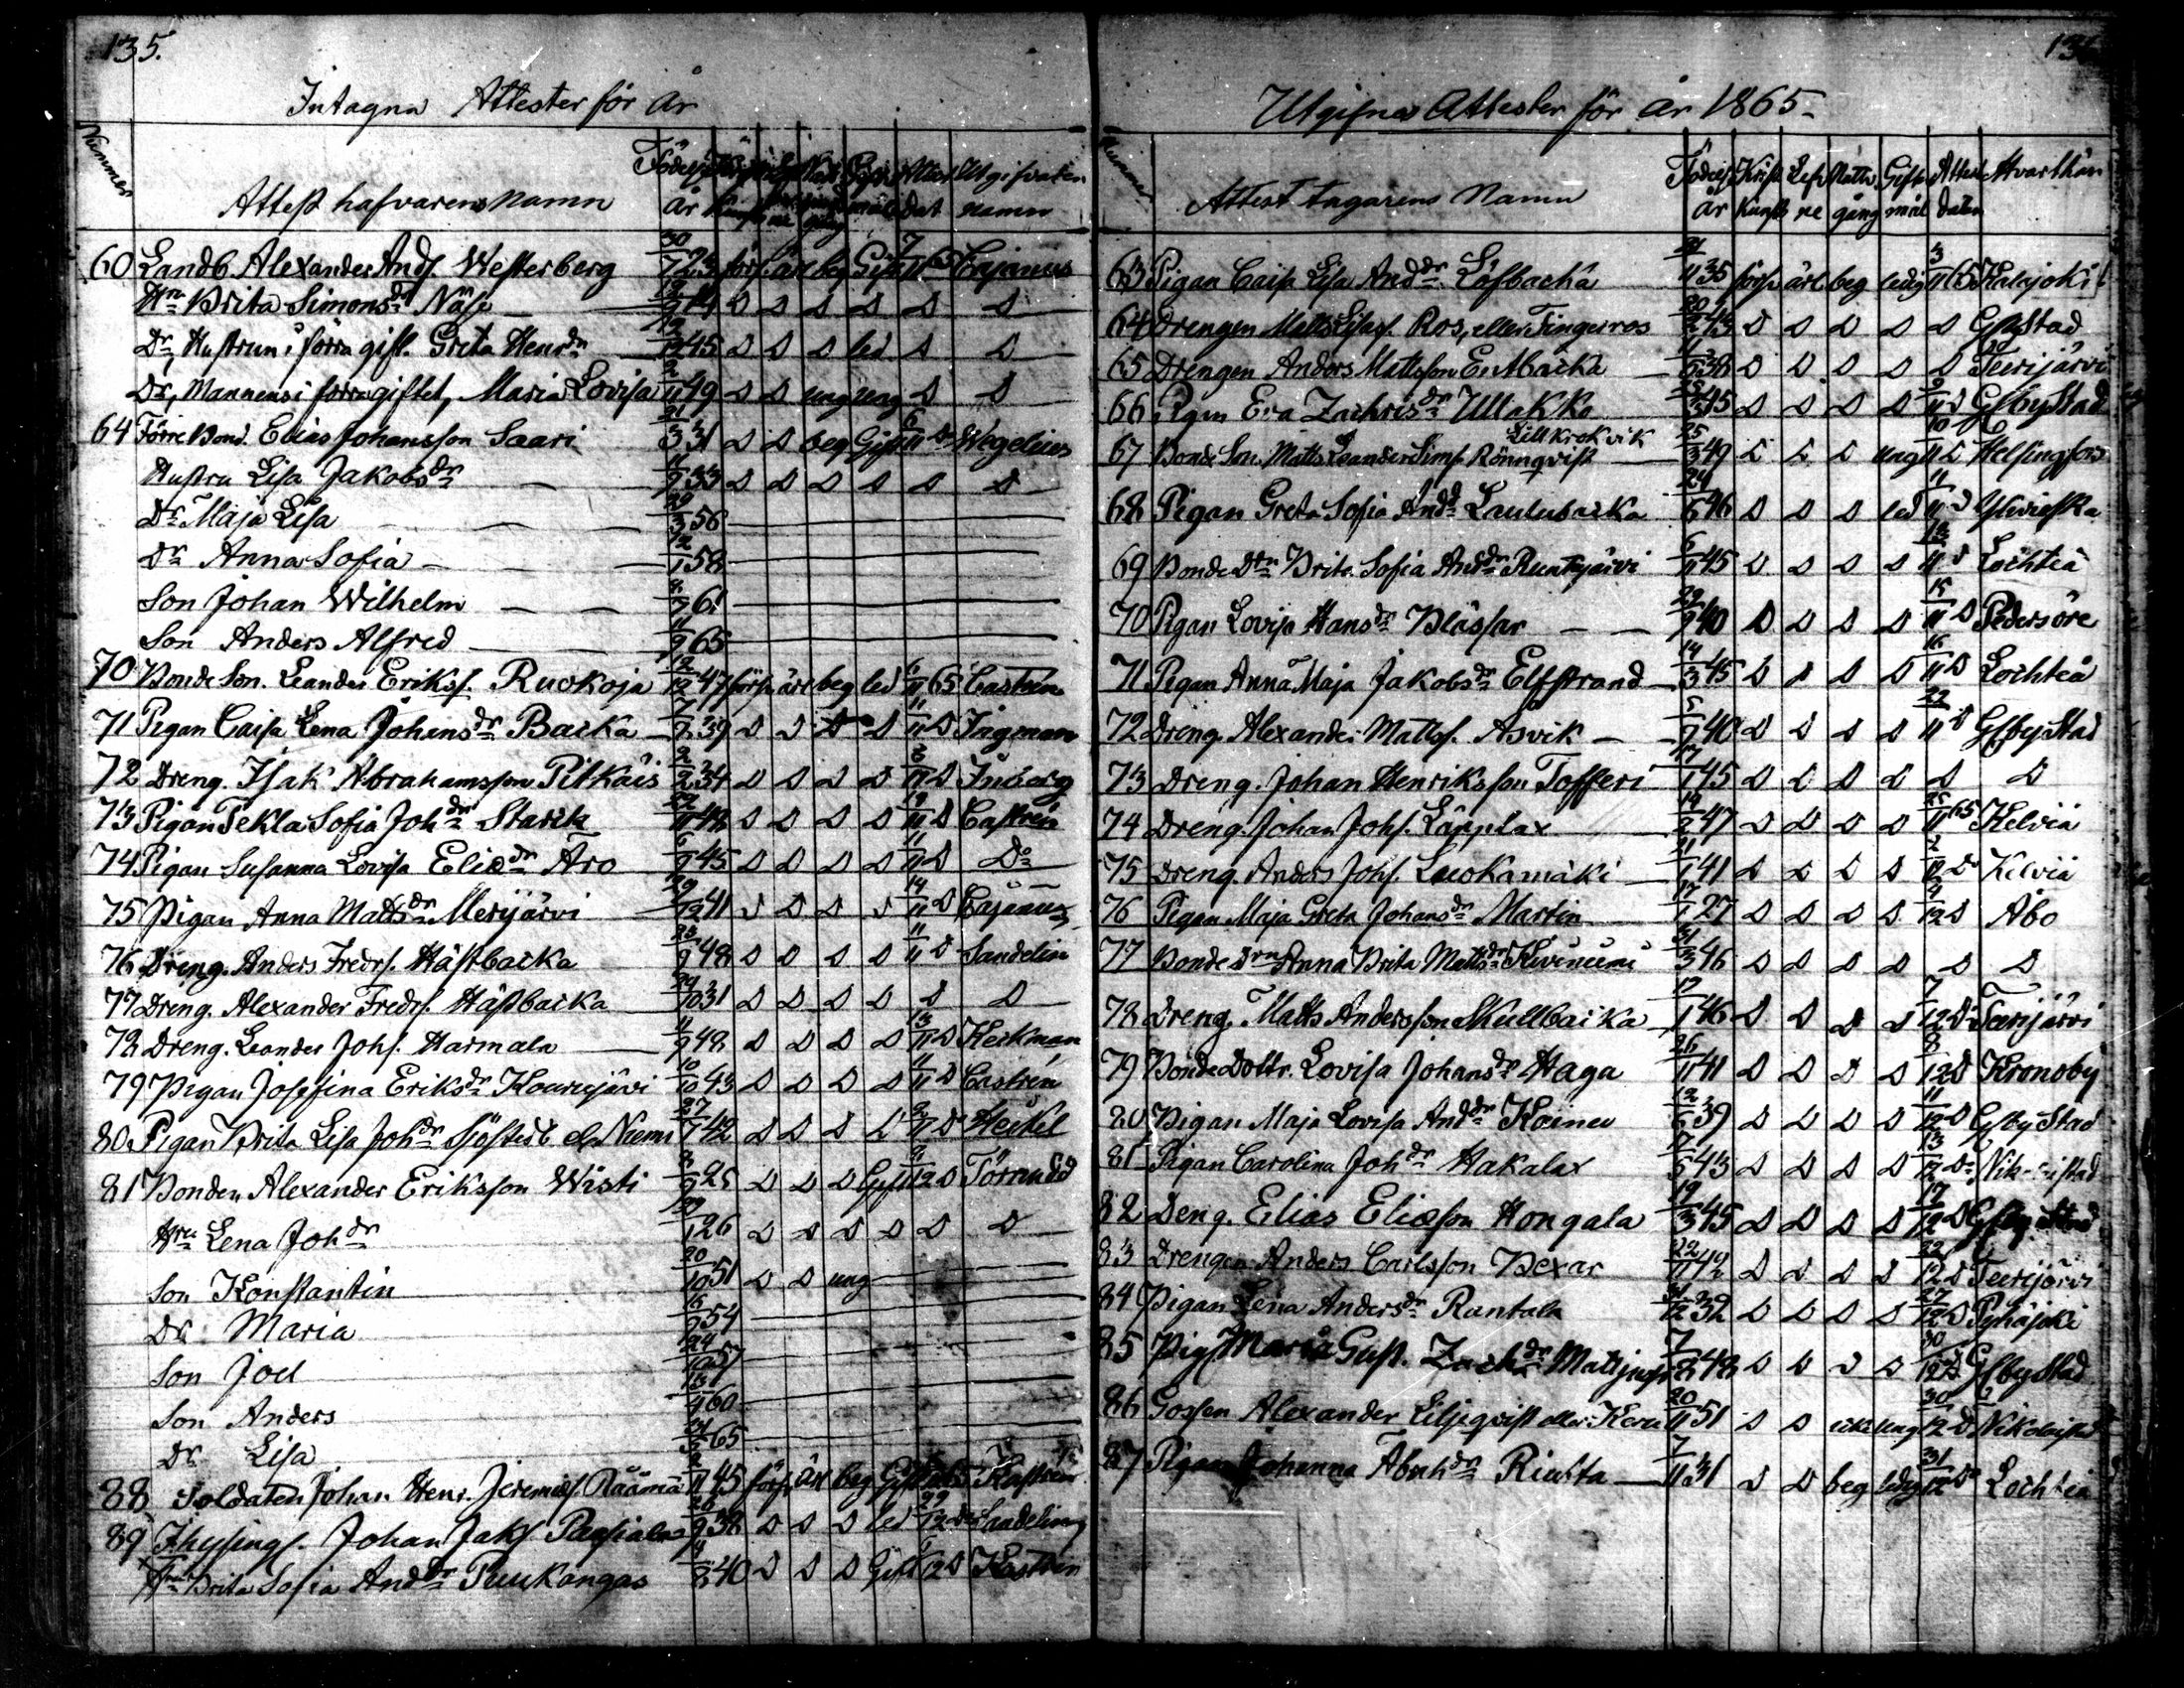 135.
Intagna Attester för År
Nummer Attest hafvarens Namn Födelse År Attest Dat Utgifvaren namn
60 Landb. Alexander Ands. Westerberg 30/7 23 förs. ärl beg Gift 7/11 65 Cajanus
Hu Brita Simonsdr Näse D D D D D D
Dr, Hustrun i förra gift. Greta Hensdr 45 D D D led D D
Dr, Mannens i förra giftet, Maria Lovisa 49 D D ung ung D D
64 Förre Bond. Elias Johansson Saari 21/3 31 D D beg Gift 6/11 Do Wegelius
Hustru Lisa Jakobsdr 11/9 33 D D D D D D
Dr Maja Lisa 29/3 56
Dr Anna Sofia 12/1 58
Son Johan Wilhelm 8/7 61
Son Anders Alfred 11/9 65
70 Bonde Son. Leander Erikss. Ruokoja 12/12 47 förs. ärl beg led 6/11 65 Castrén
71 Pigan Caisa Lena Johansdr Backa 7/9 39 D D D D 11/11 D Ingman
72 Dreng. Isak Abrahamsson Pitkäis 2/2 34 D D D D 3/11 D Inberg
73 Pigan Tekla Sofia Johdr Starck 48 D D D D 19/11 D Castrén
74 Pigan Susanna Lovisa Eliædr Aro 6/9 45 D D D D 11/11 D Do
75 Pigan Anna Mattsdr Merijärvi 29/12 41 D D D D 14/11 D Cajanus
76 Dreng. Anders Fredrs. Hästbacka 23/9 48 D D D D 11/11 D Sandelin
77 Dreng. Alexander Fredrs. Hästbacka 29/10 31 D D D D D D
78 Dreng. Leander Johs. Harmala 11/9 48 D D D D 13/11 D Heikman
79 Pigan Josefina Eriksdr Kourujärvi 10/10 43 D D D D 11/11 D Castrén
80 Pigan Brita Lisa Johdr Sjöstedt el. Niemi 27/7 42 D D D D D Heikel
81 Bonden Alexander Eriksson Wisti 8/9 25 D D D Gift 12 D Törnudd
Hru Lena Johdr 1 26 D D D D D D
Son Konstantin 20/10 51 D D ung
Dr Maria 16/9 54
Son Joel 24/10 57
Son Anders 13/4 60
Dr Lisa 65
88 Soldaten Johan Henr. Jeremiæs. Rååmä 11 45 förs. ärl beg Gift Kastren
89 Inhysings. Johan Jaks Pasiala 26/9 38 D D D led 29/12 Do Sandelin
Hru Brita Sofia Anddr Puukangas 4/8 40 D D D Gift 12 D Kastren
136
Utgifna Attester för år 1865.
Nummer Attest tagarens Namn Födelse år Krist. Kunsk Lefv ne Nattv. gång Gifte mål Attest Datum Hvarthän
63 Pigan Caisa Lisa Anddr Löfbacka 21/11 35 förs. ärl beg ledig 3/11 65 Kalajoki
64 Drengen Matts Eliass. Ros, eller Fingerros 20/2 43 D D D D D Glstad
65 Drengen Anders Mattsson Enbacka 11/6 38 D D D D D Teerijärvi
66 Pigan Eva Zachrisdr Ullakko 45 D D D D 9/11 D GlbyStad
67 Bonde Son. Matts Leander Sims. Rönnqvist Lillkrokvik 25/3 49 D D D ung 10/11 D Helsingfors
68 Pigan Greta Sofia Andd Laulubacka 24/6 46 D D D led 11/11 D Ylivieska
69 Bonde Drn Brita Sofia Anddr Runtujärvi 6/11 45 D D D D 13/11 D Lochteå
70 Pigan Lovisa Hansdr Blässar 22/9 40 D D D D 15/11 D Pedersöre
71 Pigan Anna Maja Jakobsdr Elfstrand 14/3 45 D D D D 16/11 D Lochteå
72 Dreng. Alexander Mattss. Åsvik 5/7 40 D D D D 22/11 D Glby Stad
73 Dreng. Johan Henriksson Tofferi 17/1 45 D D D D D D
74 Dreng. Johan Johs. Läpplax 19/2 47 D D D D 25/11 65 Kelviå
75 Dreng. Anders Johs. Luokamäki 21/1 41 D D D D 2/12 Do Kelviå
76 Pigan Maja Greta Johansdr Martin 17/1 27 D D D D 4/12 D Åbo
77 Bonde Drn Anna Brita Mattsdr Kiviniemi 31/3 46 D D D D D D
78 Dreng. Matts Andersson Skullbacka 19/1 46 D D D D 7/12 D Terijärvi
79 Bonde Dottr. Lovisa Johansdr Haga 26/11 41 D D D D 8/12 D Kronoby
80 Pigan Maja Lovisa Anddr Koinu 12/6 39 D D D D 11/12 D GlbyStad
81 Pigan Carolina Johdr Hakalax 17/5 43 D D D D 13/12 D Nikolaistad
82 Deng. Elias Eliæson Hongala 19/3 45 D D D D 17/12 D Glby Stad
83 Drengen Anders Carlsson Bexar 22/11 42 D D D D 22/12 D Teerijärvi
84 Pigan Lena Andersdr Rantala 12 32 D D D D 27/12 D Pyhäjoki
85 Pig Maria Gust. Zachdr Mattjus 7/8 48 D D D D 30/12 D GlbyStad
86 Gossen Alexander Liljeqvist eller Keru 20/11 51 D D icke ung 30/12 D Nikolaistad
87 Pigan Johanna Abrhdr Riutta 7/11 31 D D beg ledig 31/12 D Lochteå